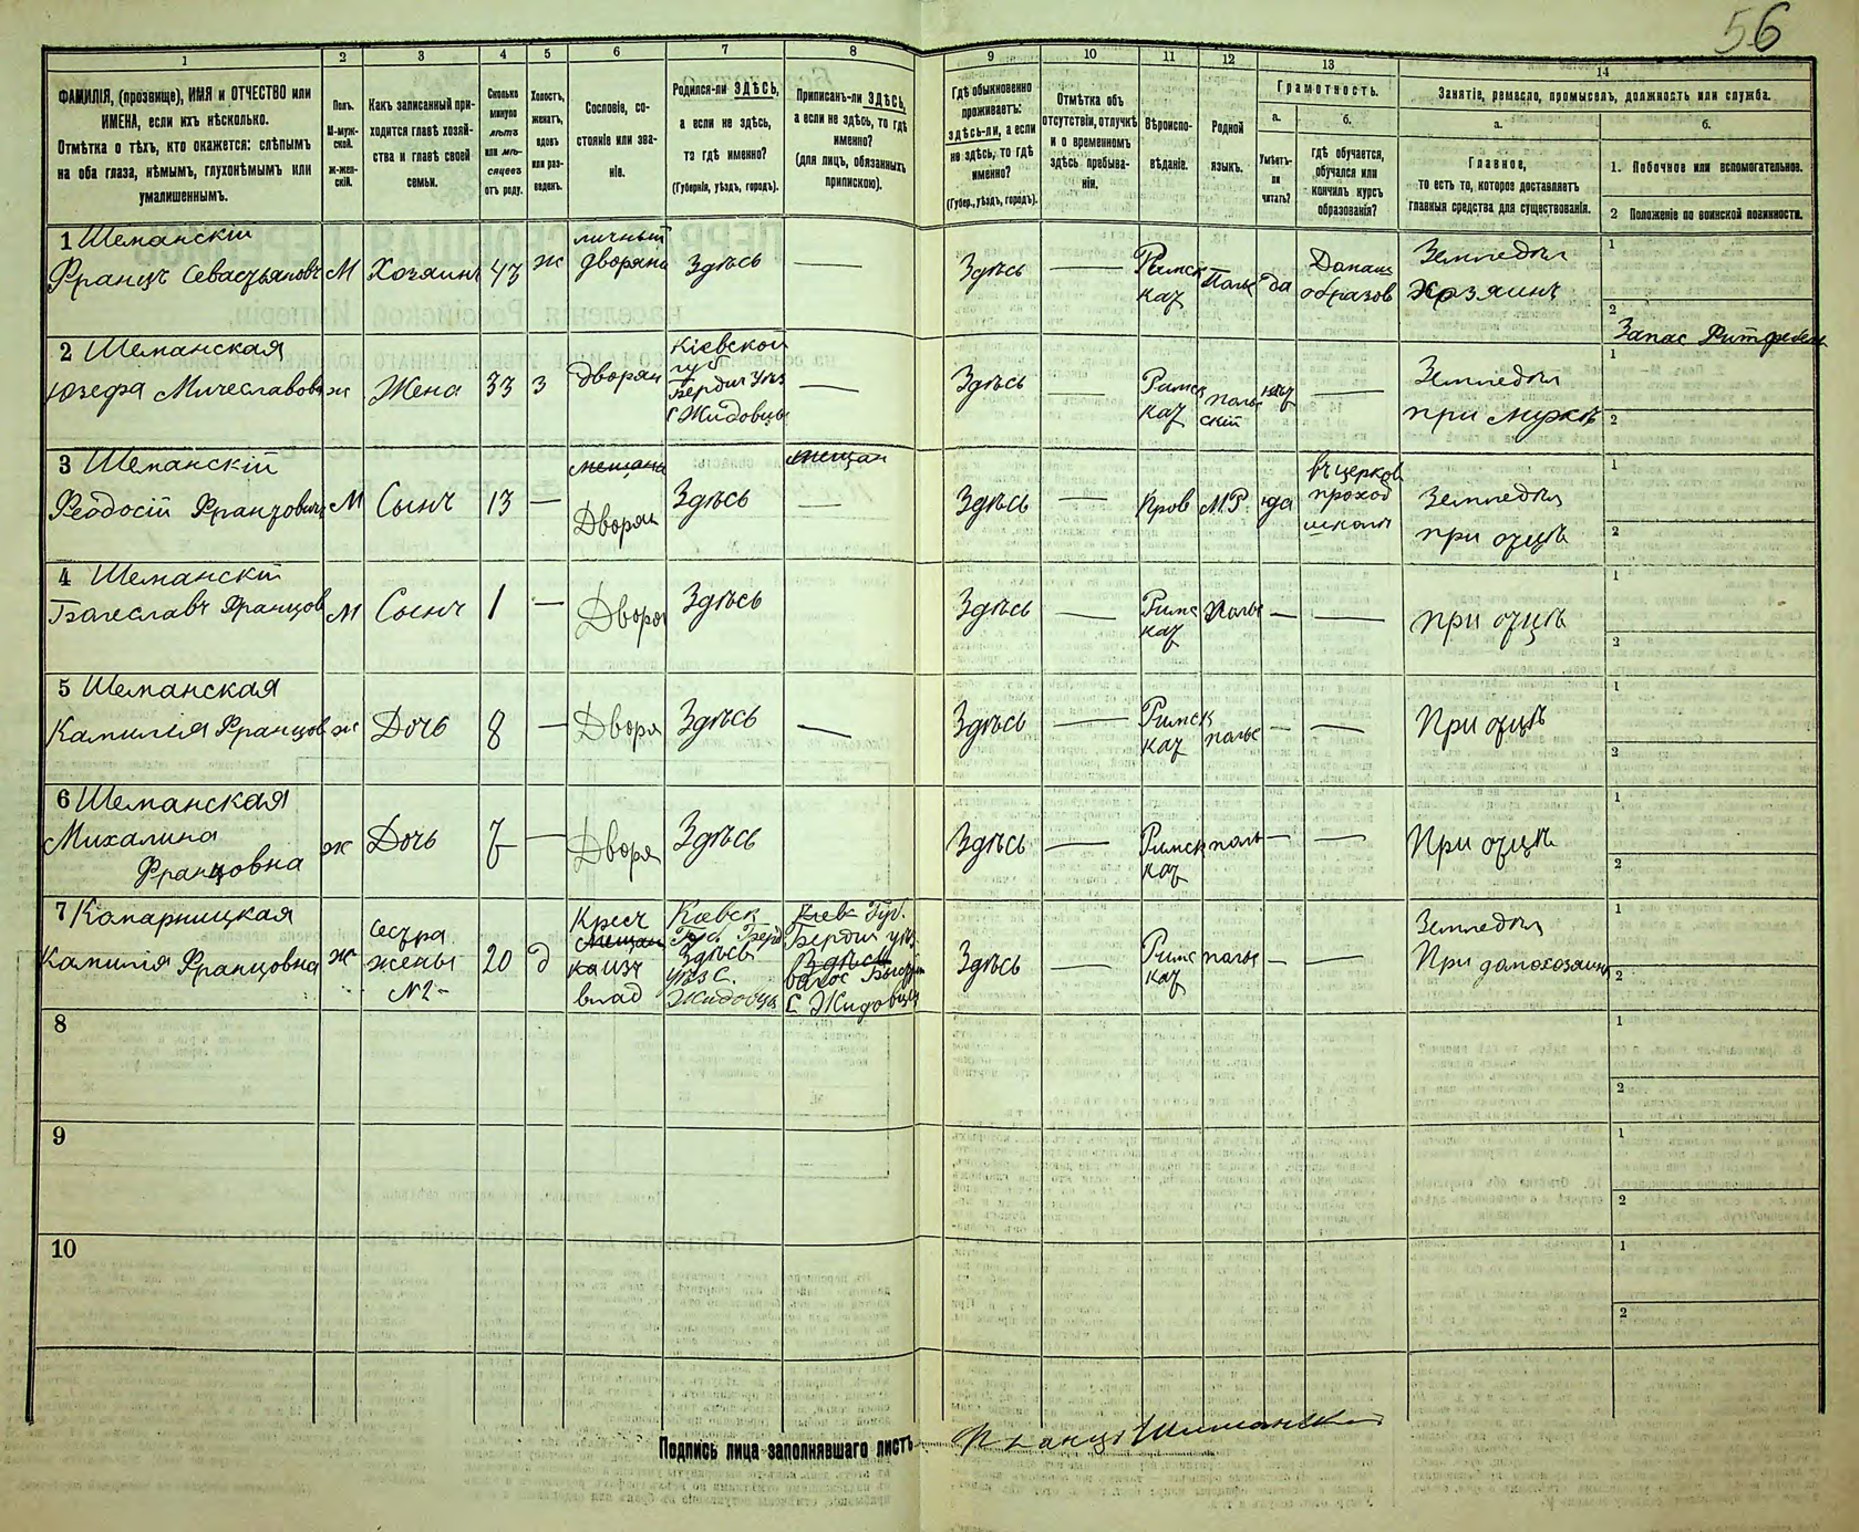 56
1 2 3 4 5 6 7 8 9 10 11 12 13 14
ФАМИЛІЯ, (прозвище), ИМЯ и ОТЧЕСТВО или
ИМЕНА, если ихъ нѣсколько.
Отмѣтка о тѣхъ, кто окажется: слѣпымъ
на оба глаза, нѣмымъ, глухонѣмымъ или
умалишеннымъ.
Полъ.
М-муж-
ской.
ж-жен-
скій.
Какъ записанный при-
ходится главѣ хозяй-
ства и главѣ своей
семьи.
Сколько
минуло
лѣтъ
или мѣ-
сяцевъ
отъ роду.
Холостъ,
женатъ,
вдовъ
или раз-
веденъ.
Сословіе, со-
стояніе или зва-
ніе.
Родился-ли ЗДѢСЬ,
а если не здѣсь,
то гдѣ именно?
(Губернія, уѣздъ, городъ).
Приписанъ-ли ЗДѢСЬ,
а если не здѣсь, то гдѣ
именно?
(для лицъ, обязанныхъ
припискою).
Гдѣ обыкновенно
проживаетъ:
здѣсь-ли, а если
не здѣсь, то гдѣ
именно?
(Губер., уѣздъ, городъ).
Отмѣтка объ
отсутствіи, отлучкѣ
и о временномъ
здѣсь пребыва-
ніи.
Вѣроиспо-
вѣданіе.
Родной
языкъ.
Грамотность.
а.
Умѣетъ-
ли
читать?
б.
Гдѣ обучается,
обучался или
кончилъ курсъ
образованія?
Занятіе, ремесло, промыселъ, должность или служба.
а.
Главное,
то есть то, которое доставляетъ
главныя средства для существованія.
б.
1. Побочное или вспомогательное.
2 Положеніе по воинской повинности.
1 Шеманскій
Францъ Севастьяновъ
М
Хозяинъ
43
ж
личный
дворяни
Здѣсь
—
Здѣсь
—
Римск
кат
Поль
да
Домаш
образов
Земледѣл
хозяинъ
1
2
Запас
2 Шеманская
Юзефа Мичеславовн
ж
Жена
33
З
дворян
Кіевской
губ
Бердич уѣз
с Жидовцы
—
Здѣсь
—
Римск
кат
поль
скій
нѣт
—
Земледѣл
при мужѣ
1
2
3 Шеманскій
Феодосій Францовичъ
М
Сынъ
13
—
мещани
Дворян
Здѣсь
мещан
—
Здѣсь
—
Прав
М.Р.
да
въ церков
приход
школѣ
Земледѣл
при отцѣ
1
2
4 Шеманскій
Болеславъ Францов
М
Сынъ
1
—
Дворя
Здѣсь
Здѣсь
—
Римс
кат
Поль
—
—
при отцѣ
1
2
5 Шеманская
Камилія Францов
ж
Дочь
8
—
Дворя
Здѣсь
—
Здѣсь
—
Римск
кат
польс
—
—
При отцѣ
1
2
6 Шеманская
Михалина
Францовна
ж
Дочь
7
—
Дворя
Здѣсь
Здѣсь
—
Римск
кат
поль
—
—
При отцѣ
1
2
7 Комарницкая
Камилія Францовна
ж
Сестра
жены
№2-
20
д
Крест
Мещан
ка изъ
влад
Кіевск
Губ. Берд
Здѣсь
уѣз с.
Жидовцы
Кіев Губ.
Бердич уѣз
Здѣсь
с Жидовцы
Здѣсь
—
Римс
кат
польс
—
—
Земледѣл
При домохозяин
1
2
8
1
2
9
1
2
10
1
2
Подпись лица заполнявшаго листъ Францъ Шиманскій